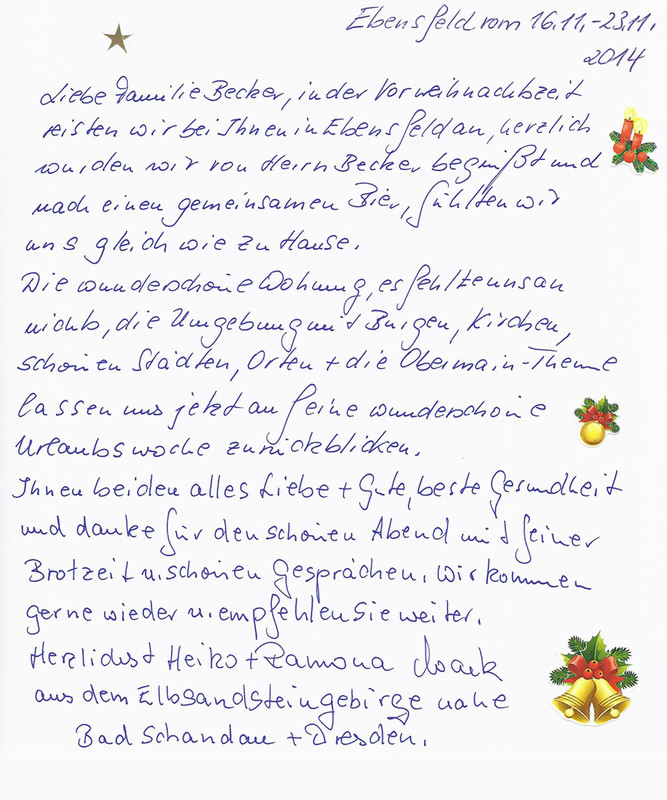 Ebensfeld vom 16.11.-23.11.
2014
Liebe Familie Becker, in der Vorweihnachtszeit
reisten wir bei Ihnen in Ebensfeld an, herzlich
wurden wir von Herrn Becker begrüßt und
nach einen gemeinsamen Bier, fühlten wir
uns gleich wie zu Hause.
Die wunderschöne Wohnung, es fehlte uns an
nichts, die Umgebung mit Burgen, Kirchen,
schönen Städten, Orten + die Obermain-Therme
lassen uns jetzt auf eine wunderschöne
Urlaubswoche zurückblicken.
Ihnen beiden alles Liebe + Gute, beste Gesundheit
und danke für den schönen Abend mit feiner
Brotzeit u. schönen Gesprächen. Wir kommen
gerne wieder u. empfehlen Sie weiter.
Herzlichst Heiko + Ramona
aus dem Elbsandsteingebirge nahe
Bad Schandau + Dresden.